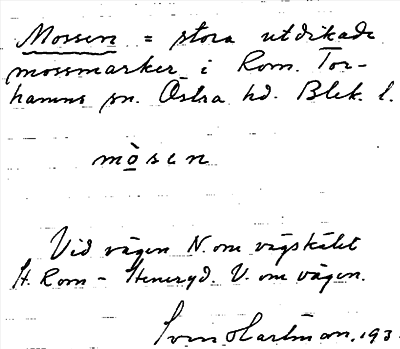 Mossen = stora utdikade
mossmarker i Rom. Tor-
hamns sn. Östra hd. Blek. l.
mòsen
Vid vägen N. om vägskälet
St. Rom - Heneryd. V. om vägen.
Sven Hartman, 193